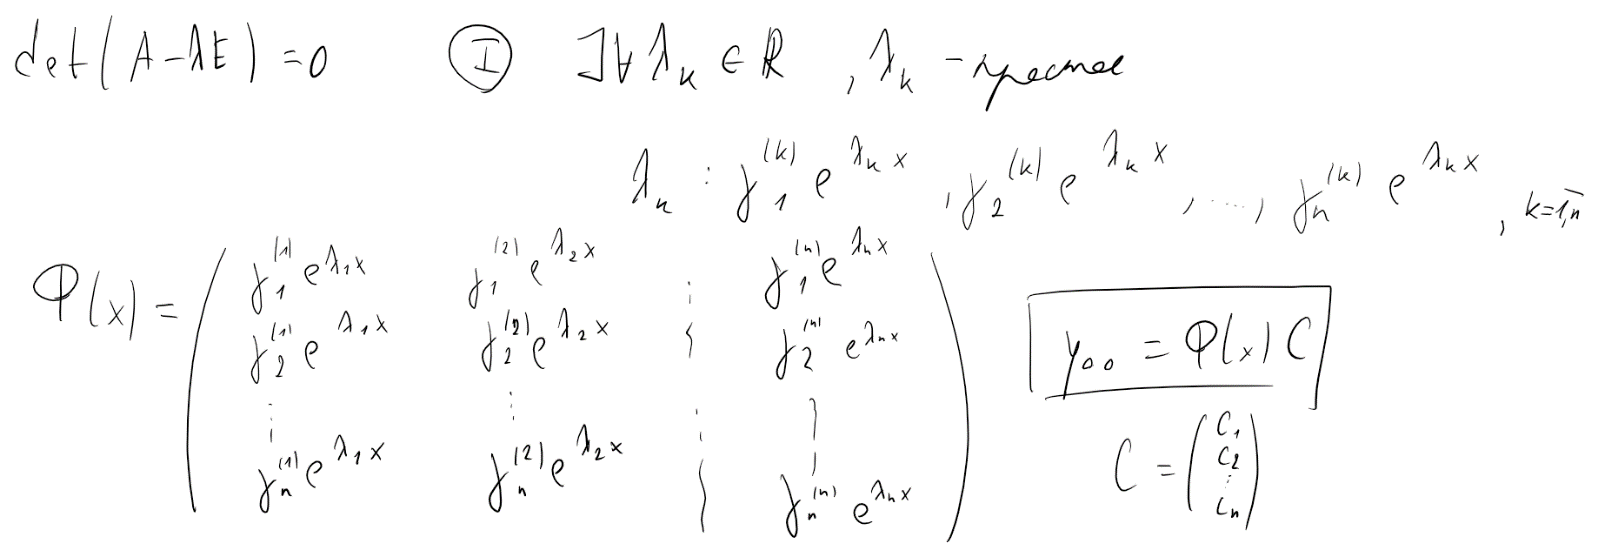 det(A-λE)=0 Ⓘ ]∀ λₖ ∈ ℝ, λₖ - простое
λₖ : γ₁⁽ᵏ⁾ e^{λₖ x}, γ₂⁽ᵏ⁾ e^{λₖ x}, ...., γₙ⁽ᵏ⁾ e^{λₖ x}, k=1,n̅
Φ(x) = ( γ₁⁽¹⁾ e^{λ₁x} γ₁⁽²⁾ e^{λ₂x} ⋮ γ₁⁽ⁿ⁾ e^{λₙx}
γ₂⁽¹⁾ e^{λ₁x} γ₂⁽²⁾ e^{λ₂x} ⋮ γ₂⁽ⁿ⁾ e^{λₙx}
⋮ ⋮ ⋮ ⋮
γₙ⁽¹⁾ e^{λ₁x} γₙ⁽²⁾ e^{λ₂x} ⋮ γₙ⁽ⁿ⁾ e^{λₙx} )
y₀₀ = Φ(x) C
C = ( C₁
C₂
⋮
Cₙ )